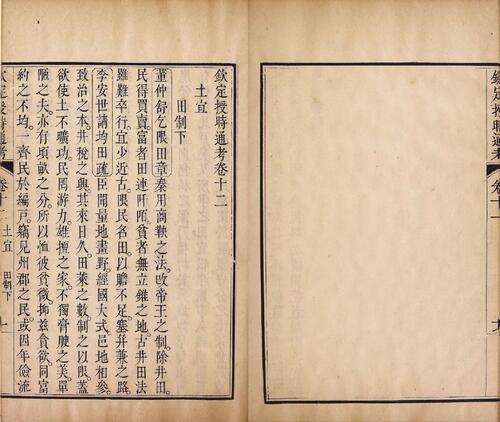 欽定授時通考
卷十一
欽定授時通考卷十二
土宜
田制下
董仲舒乞限田章秦用商鞅之法改帝王之制除井田
民得買賣富者田連阡陌貧者無立錐之地古井田法
雖難卒行宜少近古限民名田以贍不足塞幷兼之路
李安世請均田疏臣聞量地畫野經國大式邑地相參
致治之本井稅之興其來日久田萊之數制之以限蓋
欲使土不曠功民罔游力雄擅之家不獨膏腴之美單
陋之夫亦有頃畝之分所以恤彼貧微抑茲貪欲同富
約之不均一齊民於編戸竊見州郡之民或因年儉流
欽定授時通考
卷十二
土宜
田制下
一